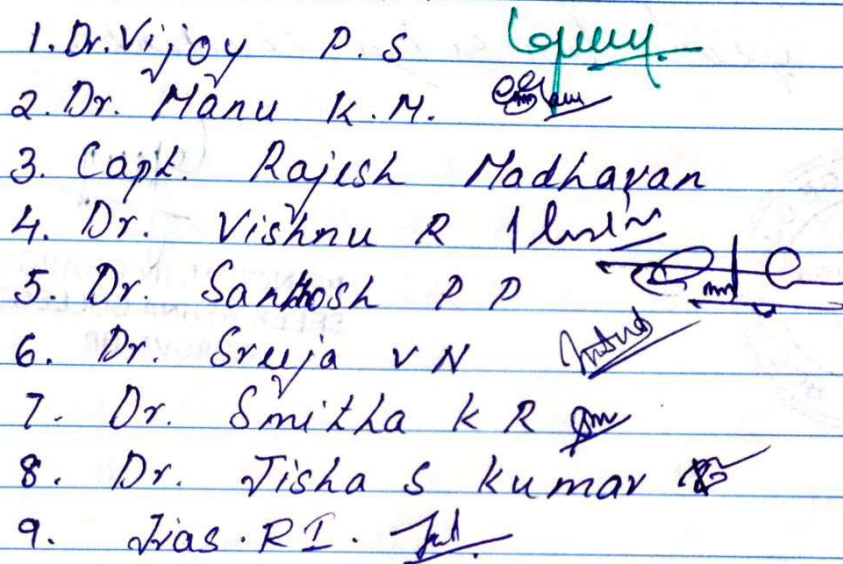 1. Dr. Vijoy P.S
2. Dr. Manu K.M.
3. Capt. Rajesh Madhavan
4. Dr. Vishnu R
5. Dr. Santhosh P P
6. Dr. Sreeja V N
7. Dr. Smitha K R
8. Dr. Jisha S Kumar
9. Jias. R I.